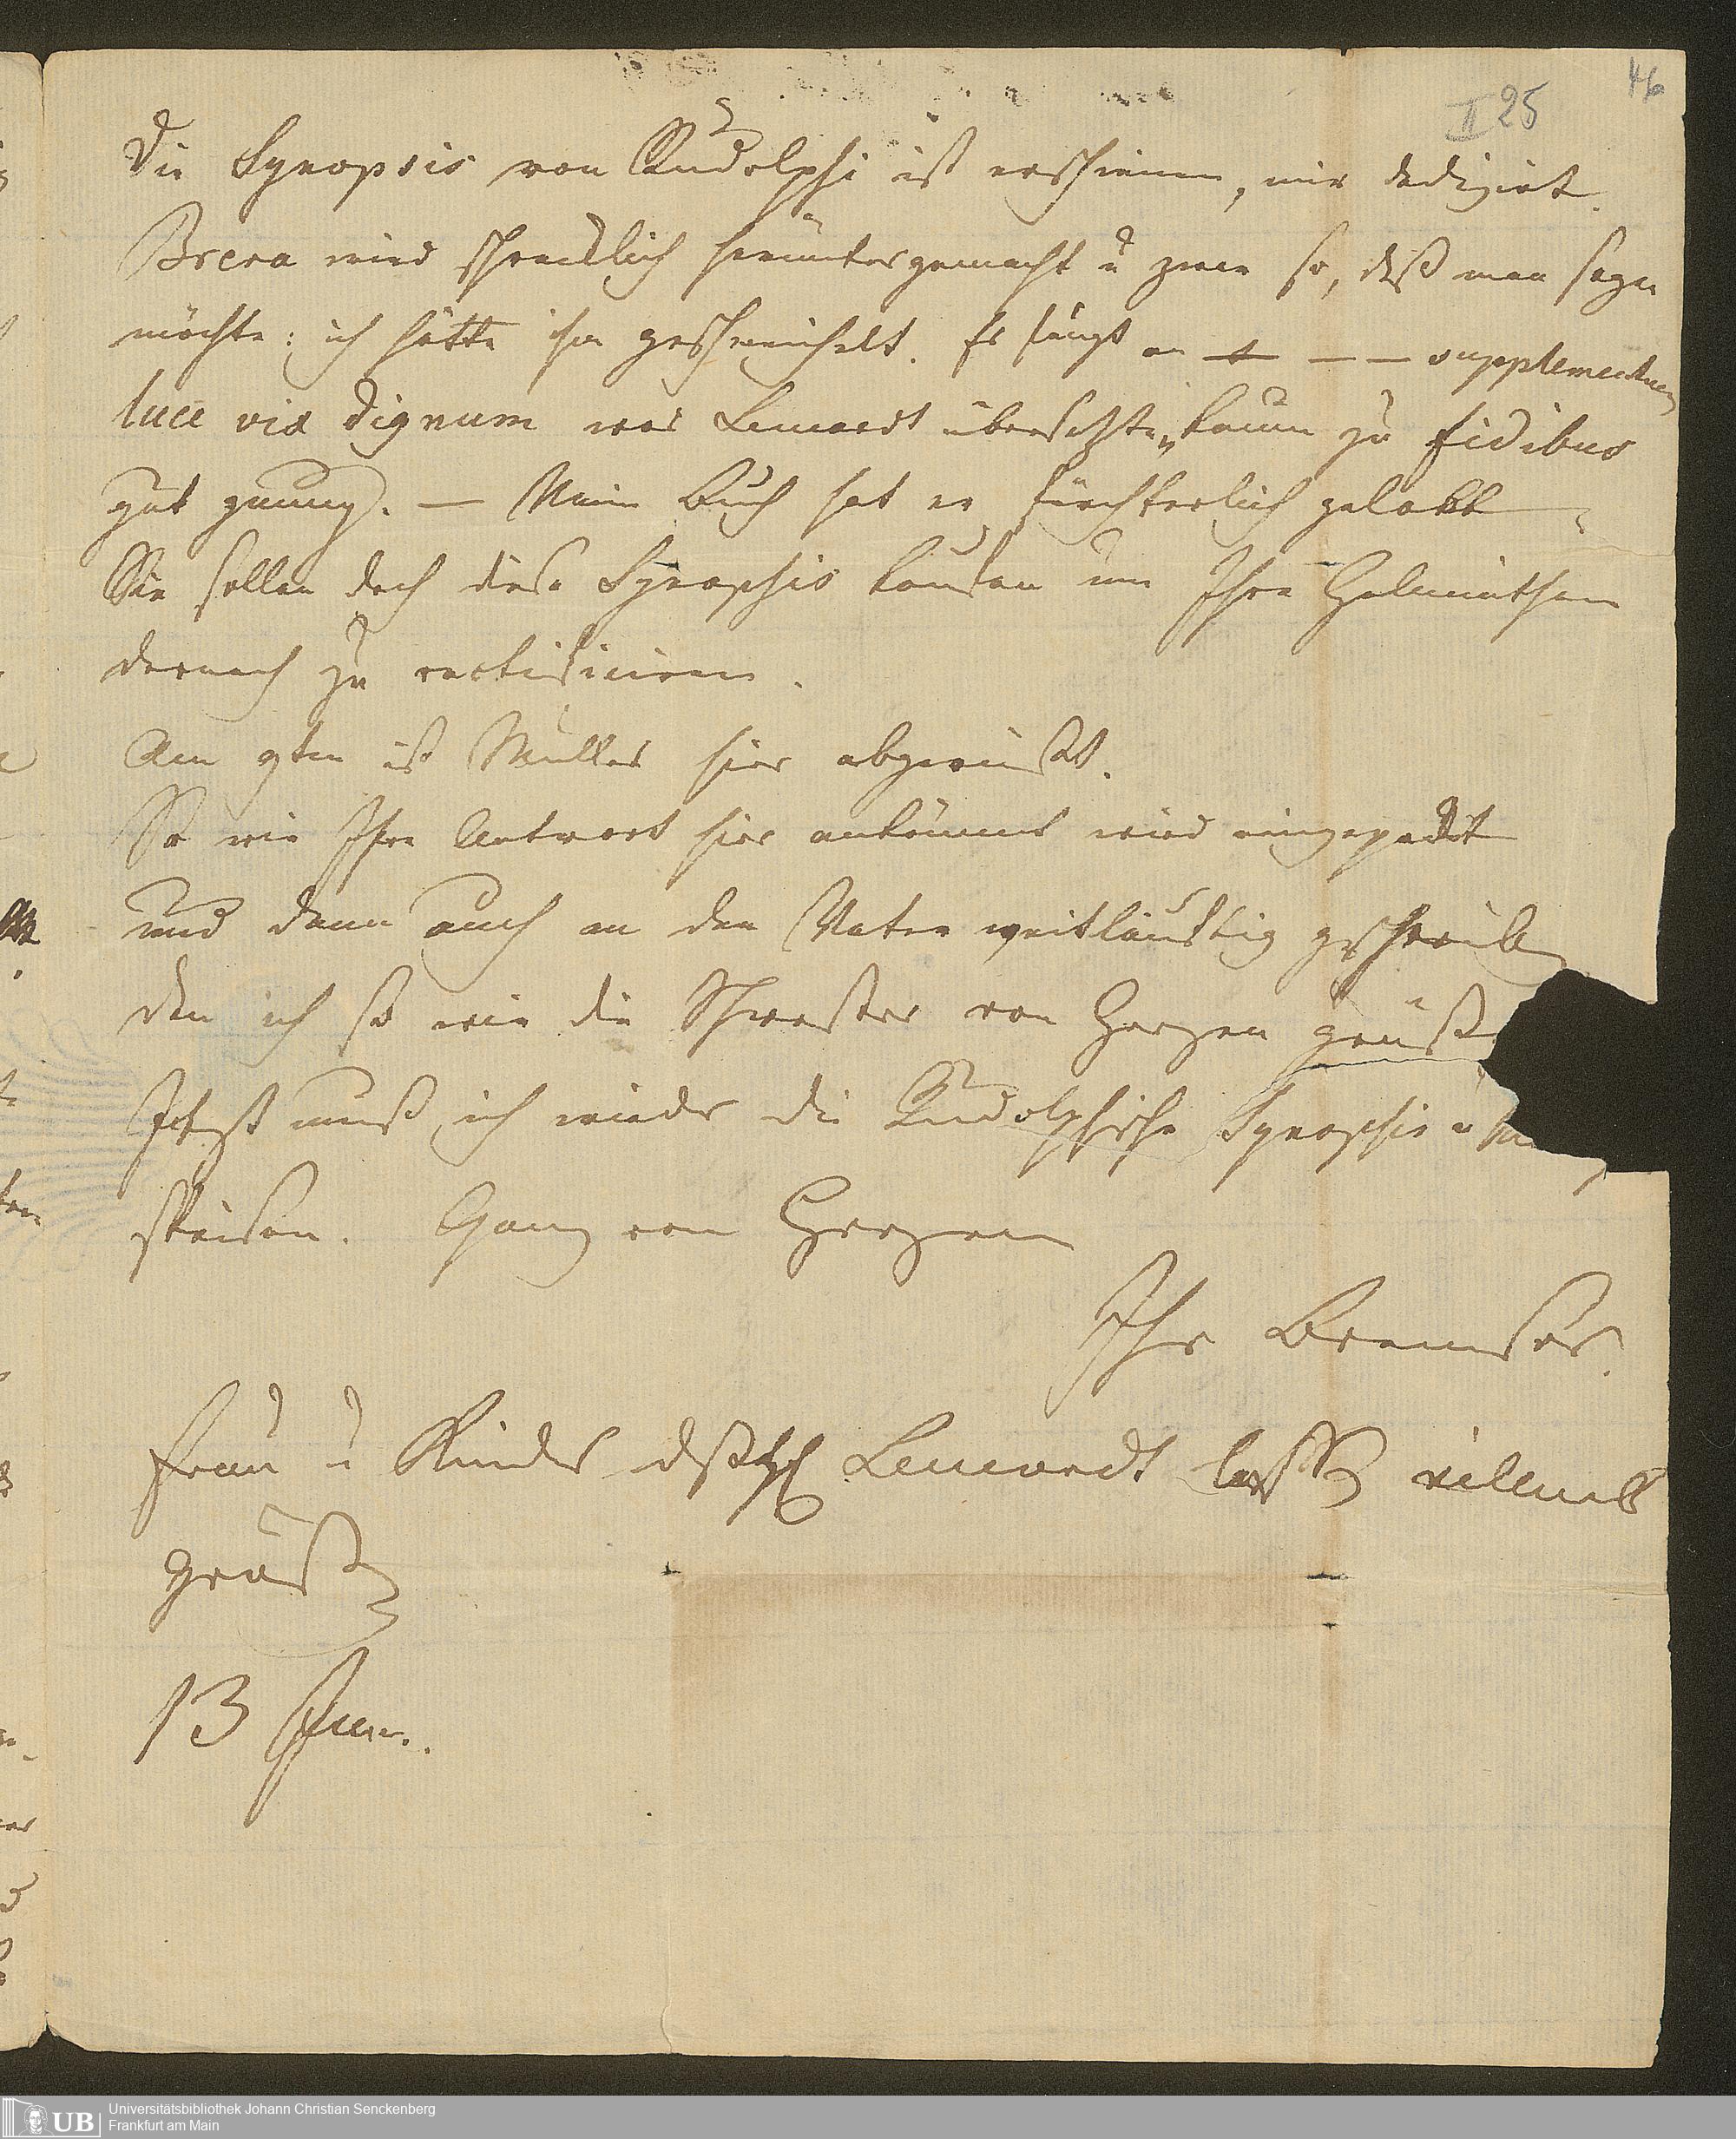 46
II 25
Die Synopsis von Rudolphi ist erschienen, mir dedizirt.
Brera wird schrecklich heruntergemacht u zwar so, daß man sagen
möchte: ich hätte ihn geschmeichelt. Er fängt an — — — supplementum
luce vix dignum was Lenardt übersetzte „kaum zu fidibus
gut genung). — Mein Buch hat er fürchterlich gelobt
Sie sollen doch diese Synopsis kaufen um Ihre Helminthen
darnach zu rectificiren.
Am 9ten ist Müller hier abgereist.
So wie Ihre Antwort hier ankömmt wird eingepackt
und dann auch an den Vater weitläuftig geschrieben
den ich so wie die Schwester von Herzen grüße
Jetzt muß ich wieder die Rudolphische Synopsis
speisen. Ganz von Herzen
Ihr Bremser.
Frau u Kinder Lenardt lassen vielmals
grüßen
13 Jun.
Universitätsbibliothek Johann Christian Senckenberg
Frankfurt am Main
UB